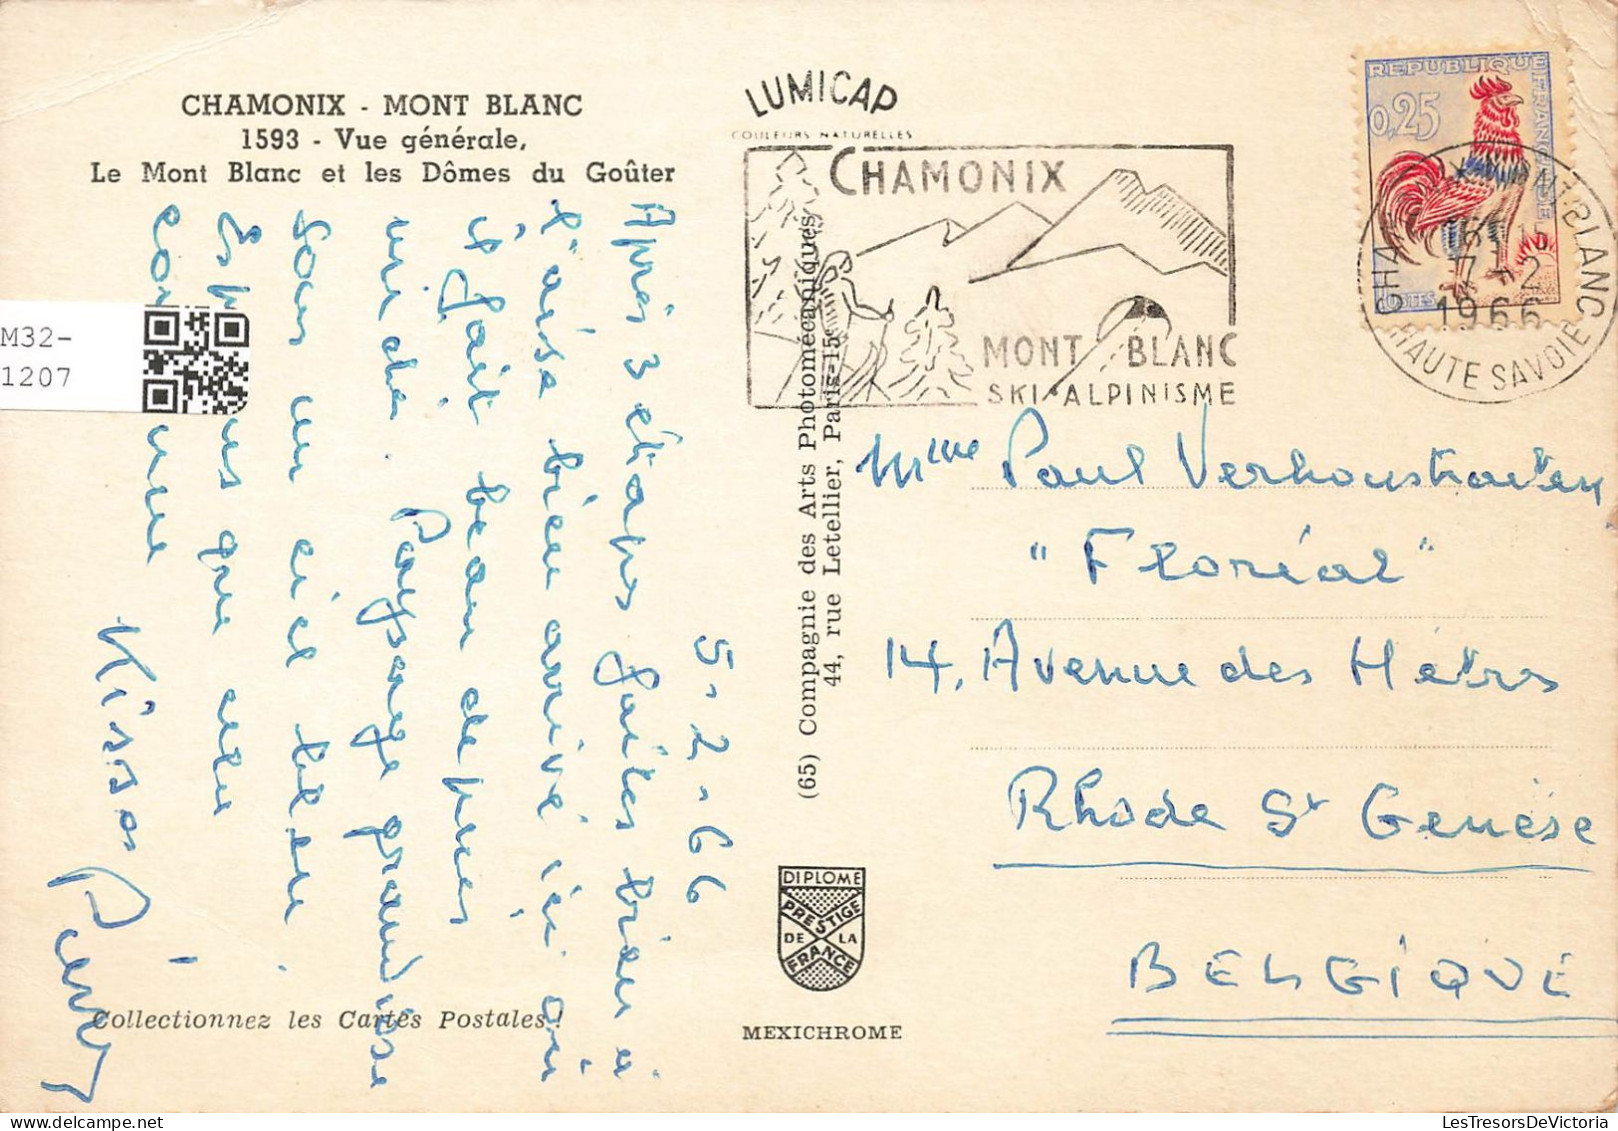 CHAMONIX - MONT BLANC
1593 - Vue générale,
Le Mont Blanc et les Dômes du Goûter
LUMICAP
COULEURS NATURELLES
CHAMONIX
MONT BLANC
SKI-ALPINISME
REPUBLIQUE FRANCAISE
0,25
POSTES
CHAMONIX-MT-BLANC
16H15
7-2
1966
HAUTE SAVOIE
M32-
1207
5-2-66
Après 3 étapes faites bien à
l'aise bien arrivé ici où
il fait beau depuis
midi. Paysage grandiose
sous un ciel bleu.
Espérons que cela
continue
Kisses
(65) Compagnie des Arts Photomécaniques
44, rue Letellier, Paris-15e
Mme Paul Verhoustraeten
"Floréal"
14, Avenue des Hêtres
Rhode St Genèse
BELGIQUE
DIPLOME
PRESTIGE
DE LA
FRANCE
Collectionnez les Cartes Postales!
MEXICHROME
LesTresorsDeVictoria